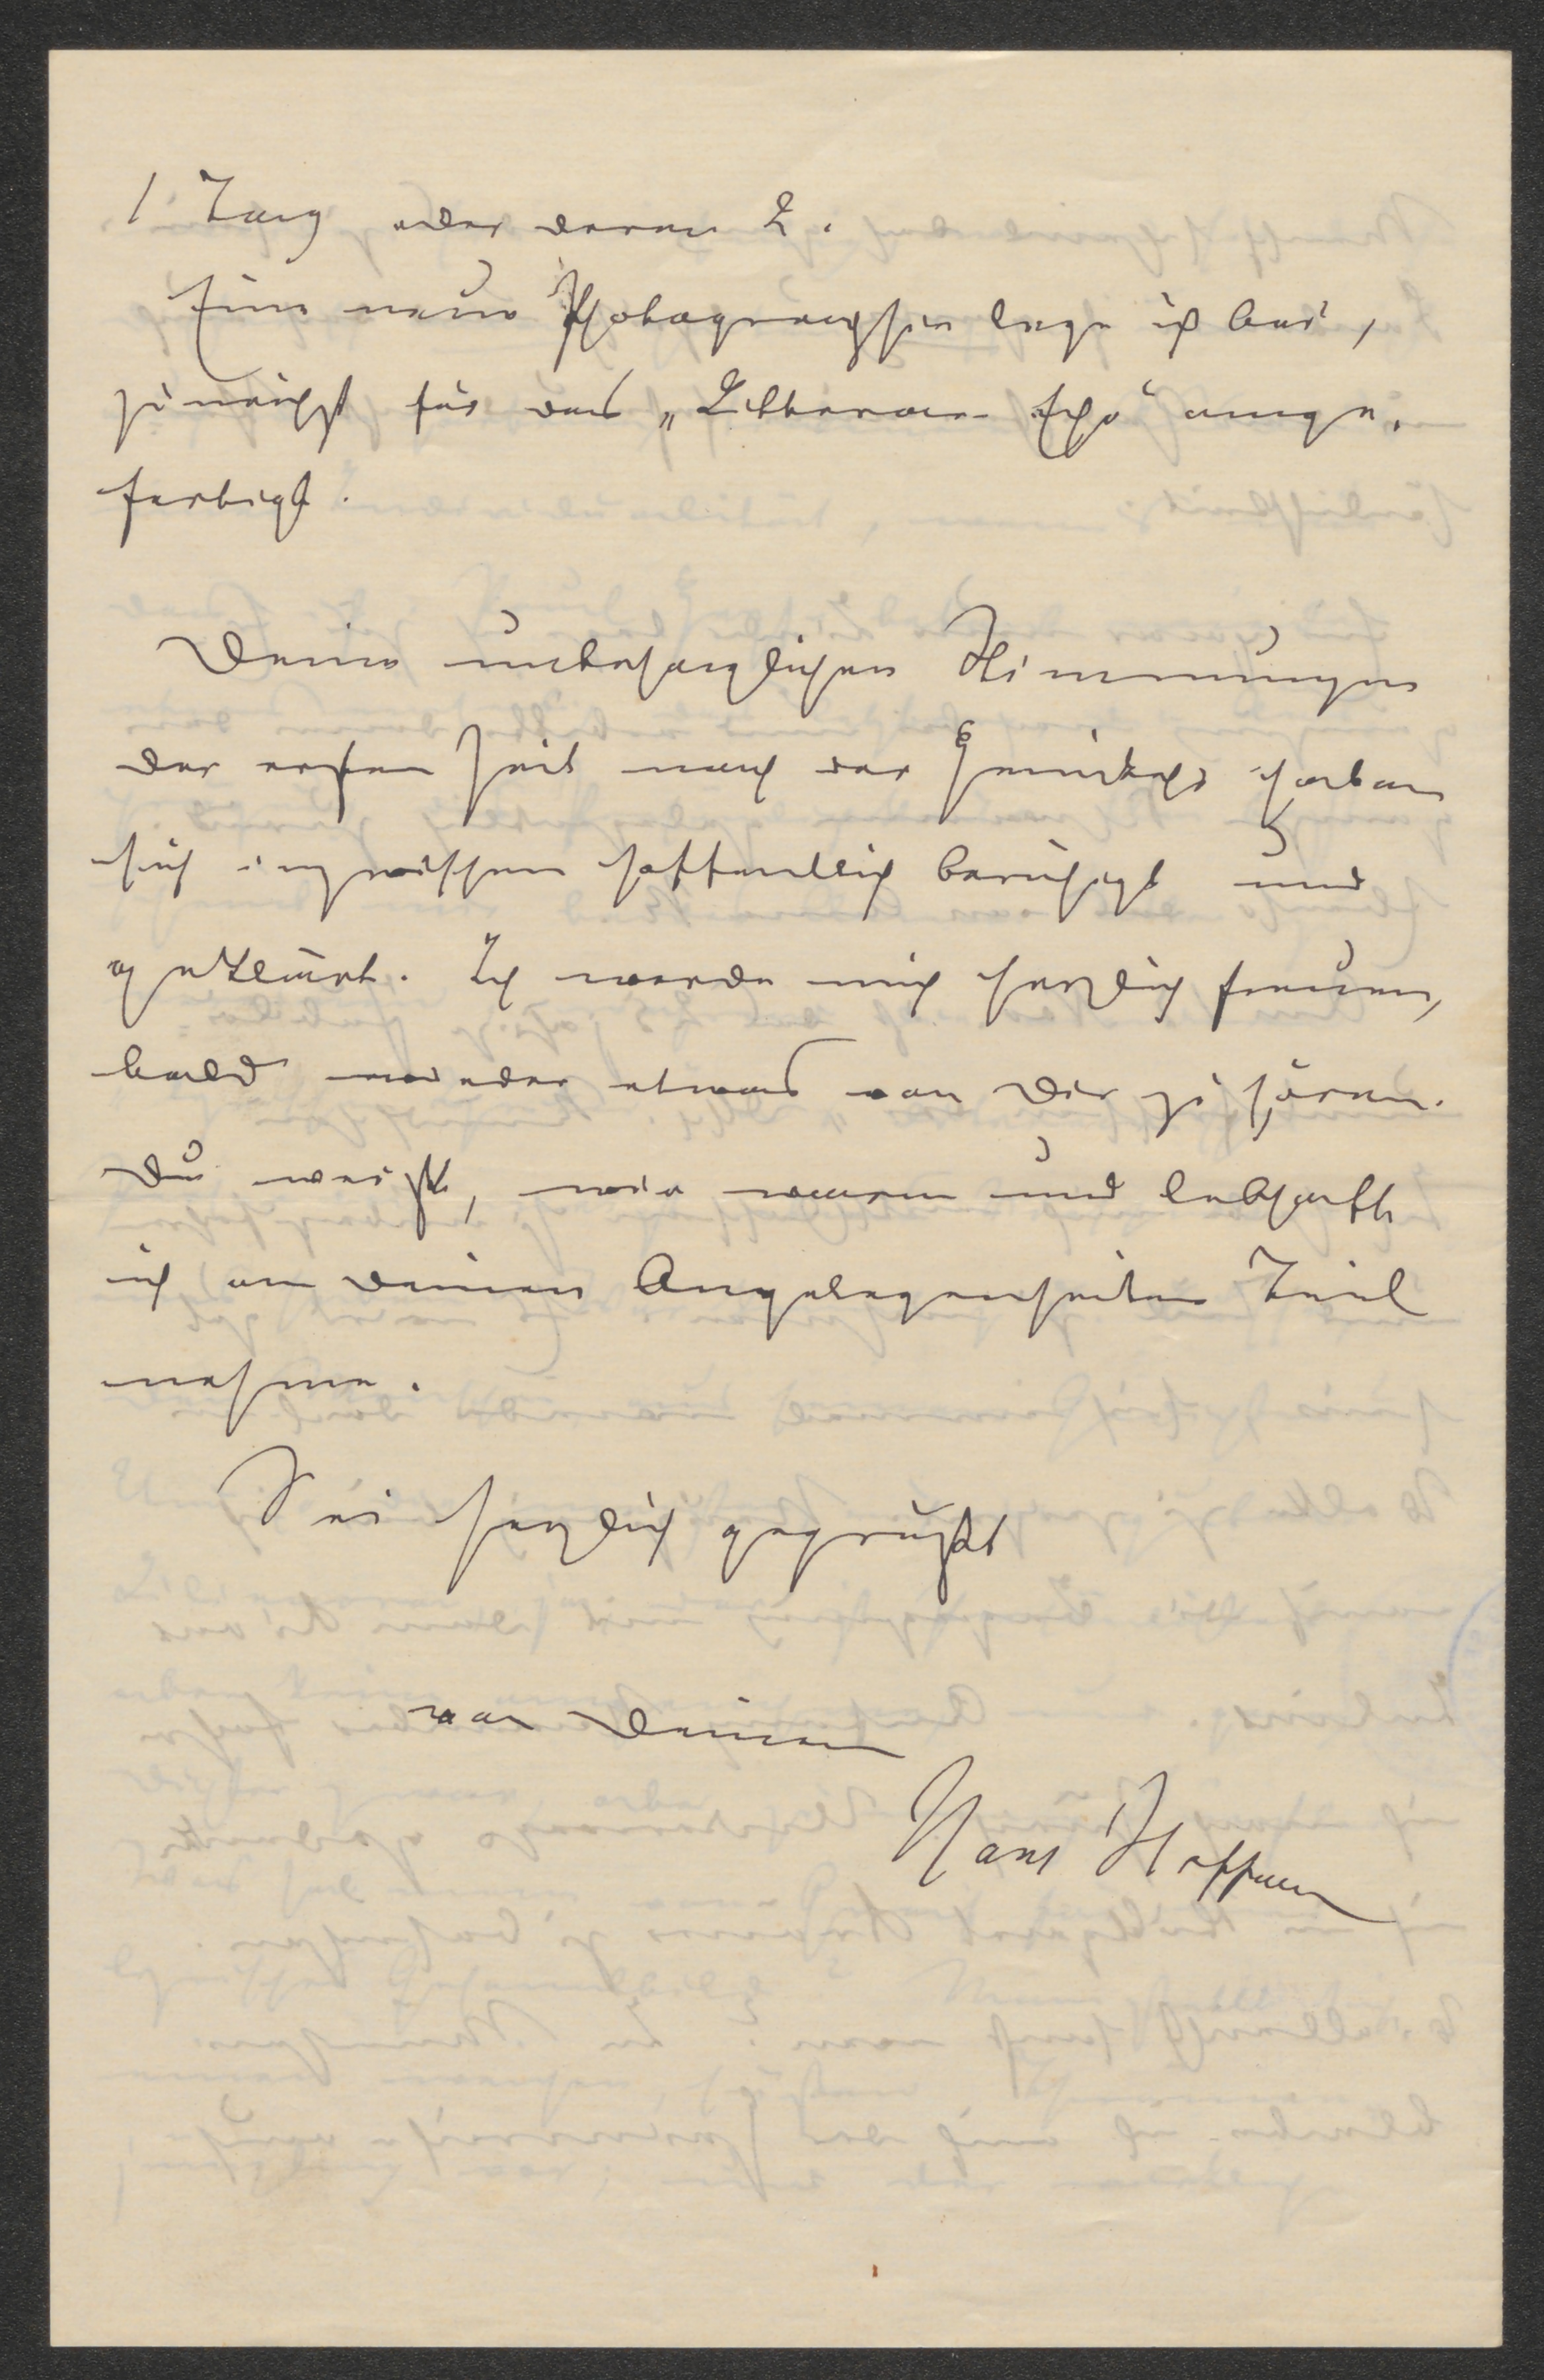 1 Tag oder deren 2.
Eine neue Photographie lege ich bei,
zunächst für das „Litterar. Echo" ange-
fertigt.
Deine unbehaglichen Stimmungen
der ersten Zeit nach der Heimkehr haben
sich inzwischen hoffentlich beruhigt und
geklärt. Ich werde mich herzlich freuen,
bald wieder etwas von Dir zu hören.
Du weißt, wie warm und lebhaft
ich an Deinen Angelegenheiten Teil
nehme.
Sei herzlich gegrüßt
von Deinem
Hans Hoffmann